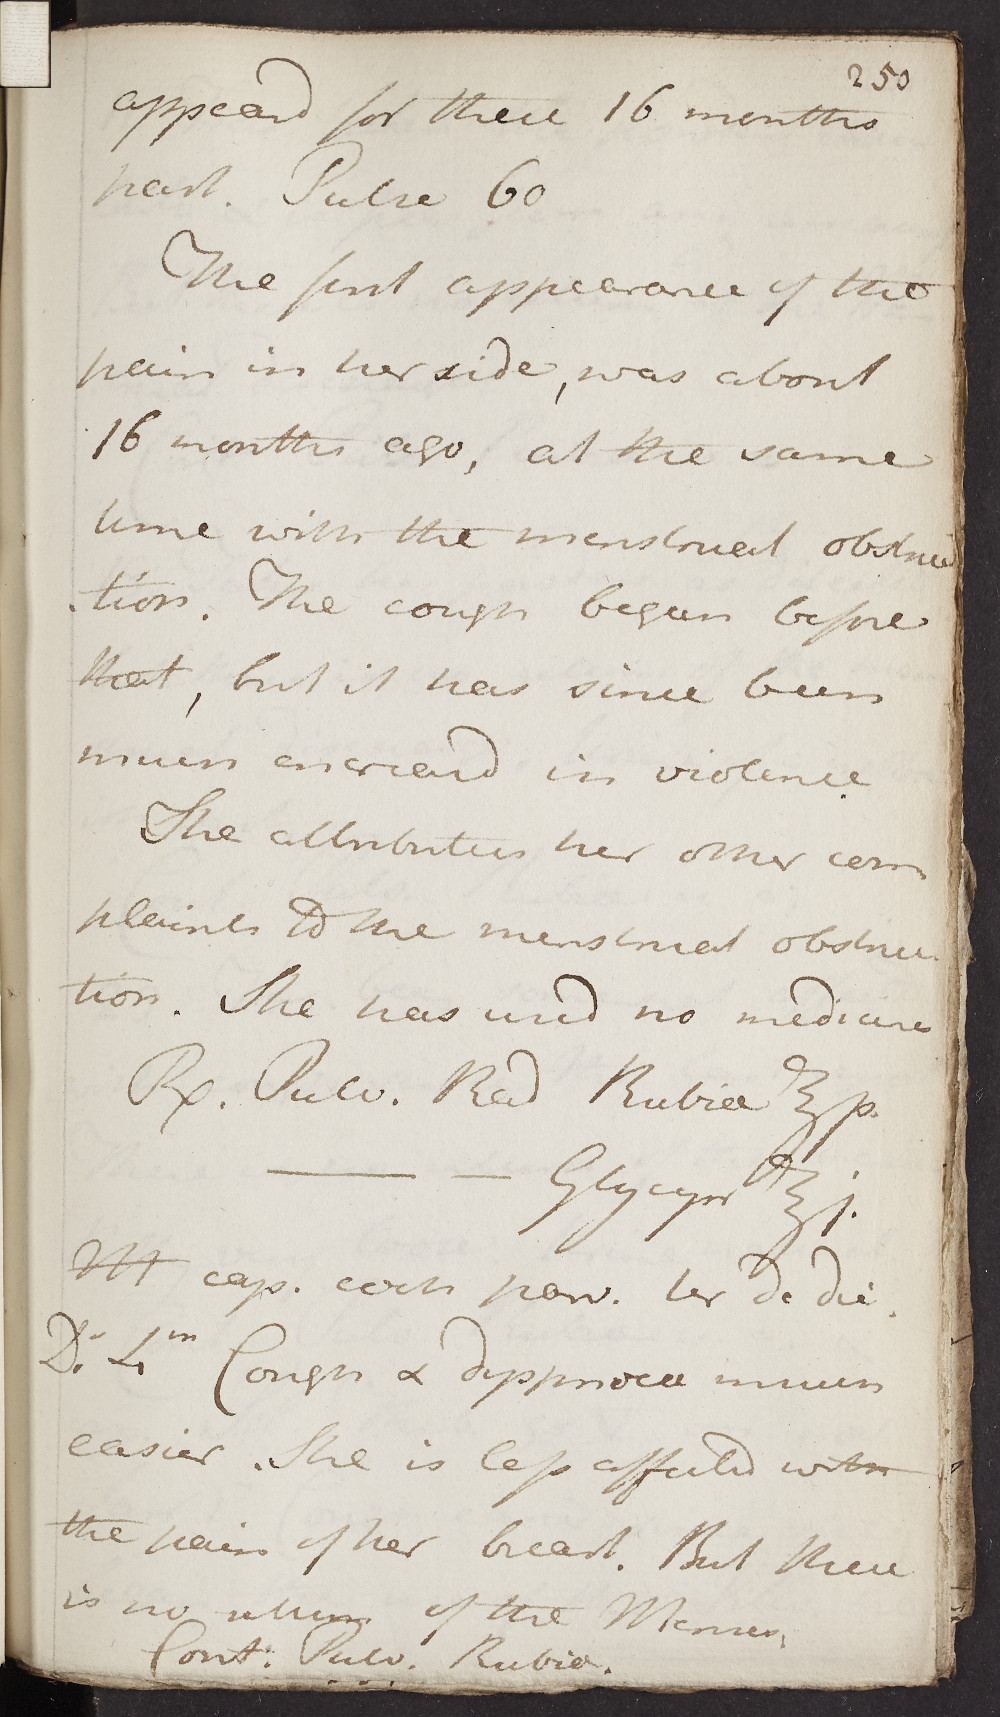 250
appeard for these 16 months
past. Pulse 60
The first appearance of the
pain in her side, was about
16 months ago, at the same
time with the menstrual obstruc
.tion. The cough began before
that, but it has since been
much encreasd in violence.
She attributes her other com
plaints to the menstrual obstruc.
tion. She has used no medicines
Rx. Pulv. Rad Rubiæ ℥p.
——— — Glycyrr ℥j.
M cap. coch parv. ter de die.
D. 4th Cough & dyspnoea much
easier. She is less affected with
the pain of her breast. But there
is no return of the Menses.
Cont. Pulv. Rubiæ.